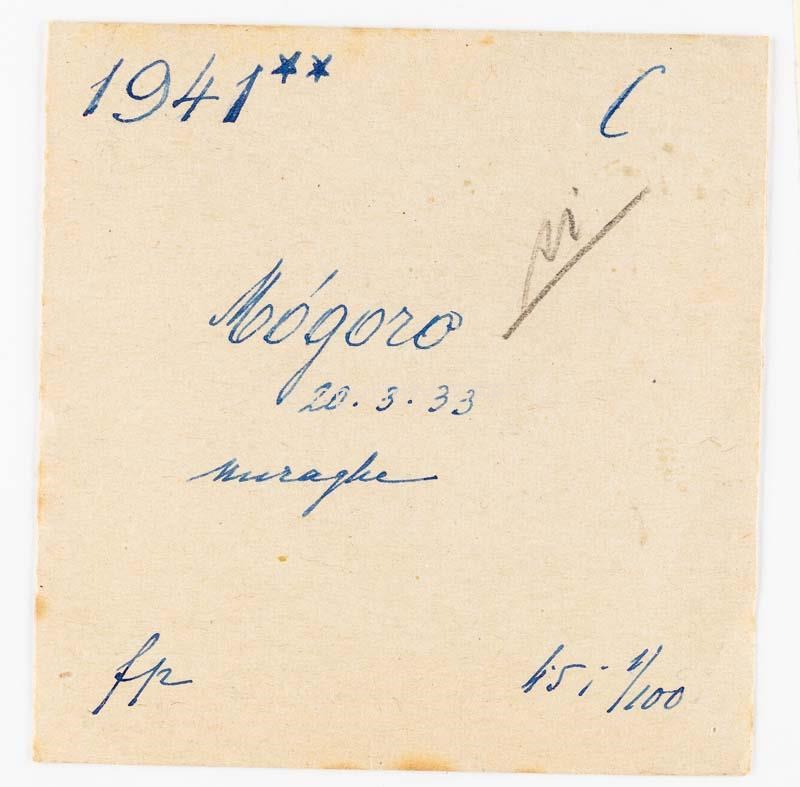 1941** C
Mógoro
20.3.33
nuraghe
fp 4.5 ; 1/100